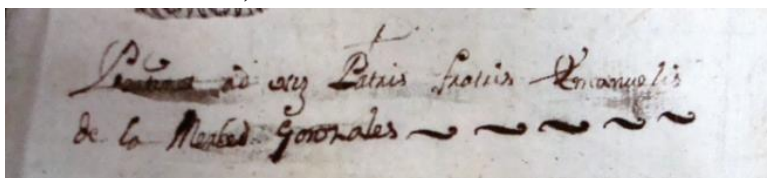 Pertinet ad usũ Patris fratris Emanuelis
de la Mersed Gonzales